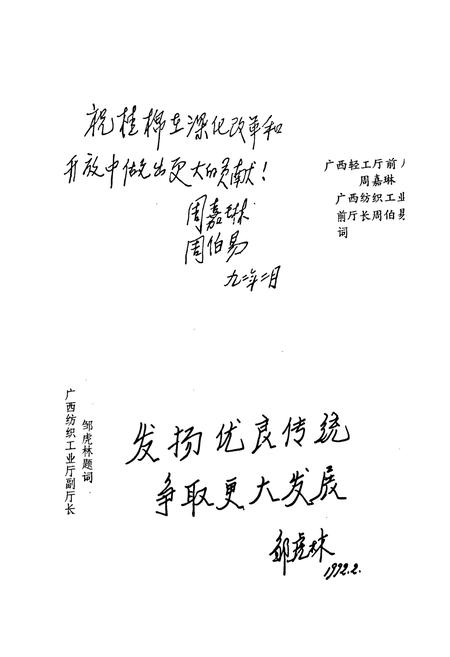 祝桂棉在深化改革和
开放中做出更大的贡献！
周嘉琳
周伯易
九二年二月
广西轻工厅前
周嘉琳
广西纺织工业
前厅长周伯易
词
发扬优良传统
争取更大发展
邹虎林
1992.2.
邹虎林题词
广西纺织工业厅副厅长